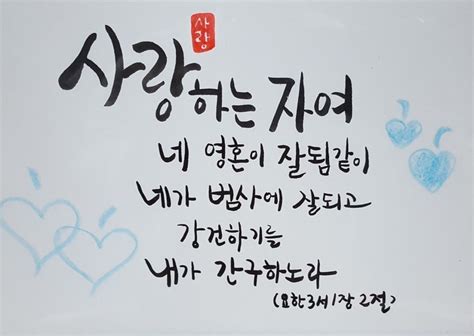 사랑
사랑하는 자여
네 영혼이 잘됨같이
네가 범사에 잘되고
강건하기를
내가 간구하노라
(요한3서 1장 2절)